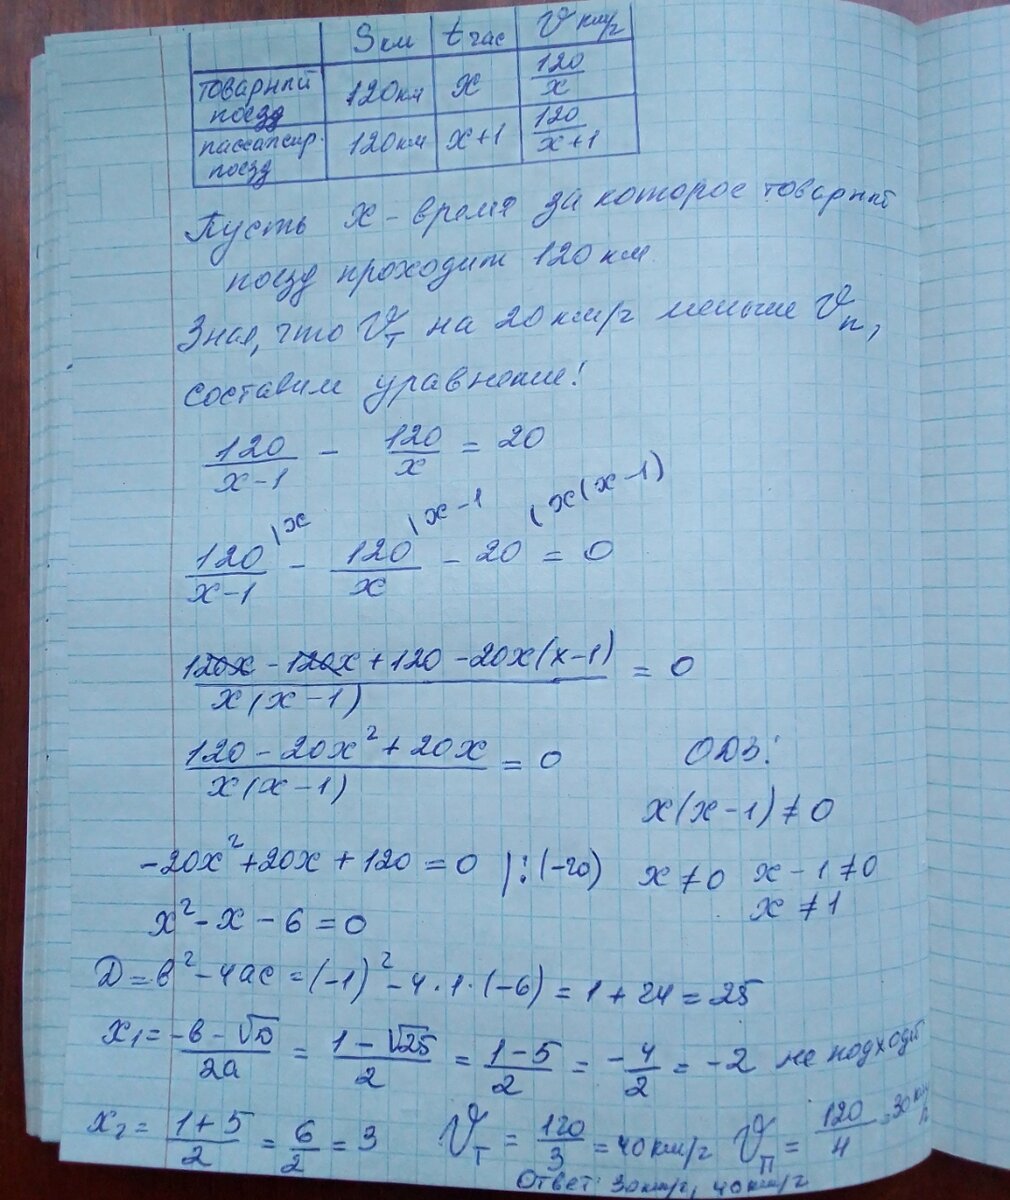 S км t час V км/г
товарный поезд 120 км x 120/x
пассажир. поезд 120 км x+1 120/x+1
Пусть x - время за которое товарный
поезд проходит 120 км
Зная, что Vт на 20 км/г меньше Vп,
составим уравнение:
120/x-1 - 120/x = 20
120/x-1 |x - 120/x |x-1 - 20 |x(x-1) = 0
120x - 120x + 120 - 20x(x-1)/x(x-1) = 0
120 - 20x² + 20x/x(x-1) = 0 ОДЗ:
x(x-1) ≠ 0
-20x² + 20x + 120 = 0 |:(-20) x ≠ 0 x - 1 ≠ 0
x ≠ 1
x² - x - 6 = 0
Д = в² - 4ас = (-1)² - 4·1·(-6) = 1 + 24 = 25
x₁ = -в - √D/2а = 1 - √25/2 = 1-5/2 = -4/2 = -2 не подходит
x₂ = 1+5/2 = 6/2 = 3 Vт = 120/3 = 40 км/г Vп = 120/4 = 30 км/г
Ответ: 30 км/г, 40 км/г